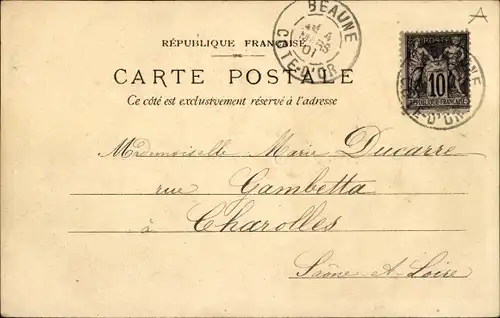 A
BEAUNE
4
MARS
01
CÔTE-D'OR
RÉPUBLIQUE FRANÇAISE
CARTE POSTALE
Ce côté est exclusivement réservé à l'adresse
10
RÉPUBLIQUE FRANÇAISE
CÔTE-D'OR
Mademoiselle Marie Ducarre
rue Gambetta
à Charolles
Saône-et-Loire